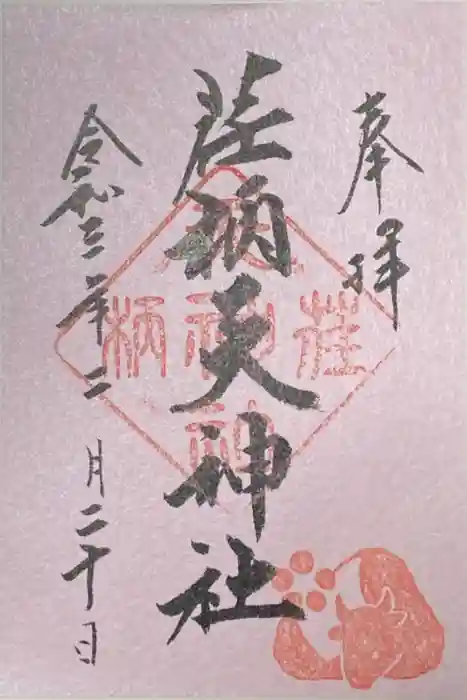 奉拝
荏柄天神社
令和三年二月二十日
荏柄